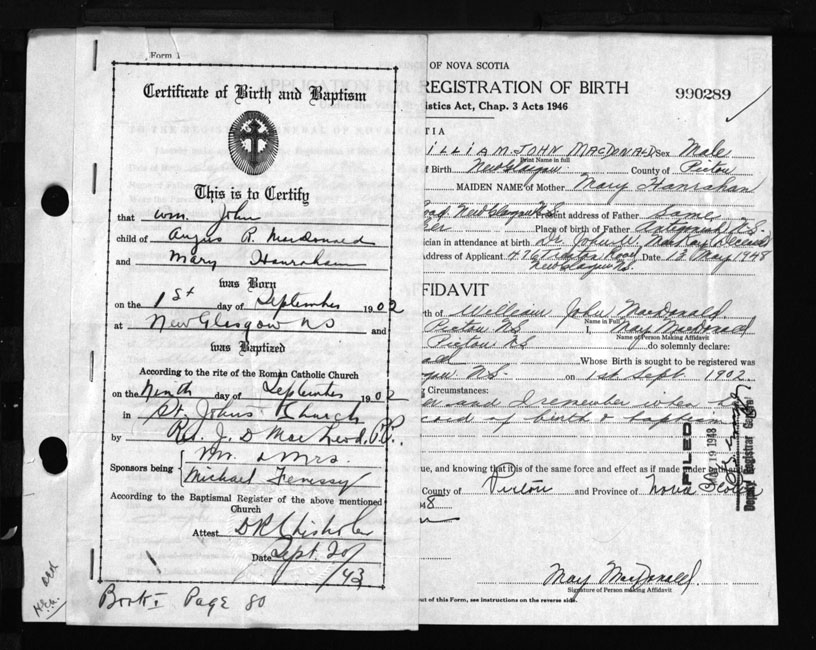 Form 1
Certificate of Birth and Baptism
This is to Certify
that Wm. John
child of Angus R. MacDonald
and Mary Hanraham
was Born
on the 1st day of September 1902
at New Glasgow NS and
was Baptized
According to the rite of the Roman Catholic Church
on the Ninth day of September 1902
in St. Johns Church
by Rev. J. D. MacLeod, P.P.
Sponsors being Mr. & Mrs.
Michael
According to the Baptismal Register of the above mentioned
Church
Attest D R Chisholm
Date Sept. 20/
/43
Book I Page 80
OF NOVA SCOTIA
REGISTRATION OF BIRTH
990289
istics Act, Chap. 3 Acts 1946
TIA
ILLIAM JOHN MACDONALD Sex Male
Print Name in full
f Birth New Glasgow County of Pictou
MAIDEN NAME of Mother Mary Hanrahan
oad New Glasgow N.S. Present address of Father Same
er Place of Birth of Father Antigonish N.S.
ician in attendance at birth Dr. John W. MacKay Deceased
Address of Applicant 496 Road Date 13 May 1948
New Glasgow N.S.
FFIDAVIT
rth of William John MacDonald
Name in Full
Pictou NS I, May MacDonald
Name of Person Making Affidavit
Pictou NS do solemnly declare:
ald Whose Birth is sought to be registered was
gow N.S. on 1st Sept. 1902
g Circumstances:
er and I remember when he
cord of birth & baptism
FILED
MAY 19 1948
Deputy Registrar General
ue, and knowing that it is of the same force and effect as if made under oath
County of Pictou and Province of Nova Scotia
48
May MacDonald
Signature of Person making Affidavit
out of this Form, see instructions on the reverse side.